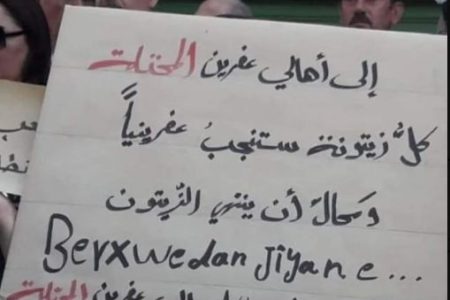 إلى أهالي عفرين المحتلة
كلُّ زيتونة ستنجبُ عفرينياً
ومحال أن ينتهي الزّيتون
Berxwedan Jiyane...
عفرين المحتلة